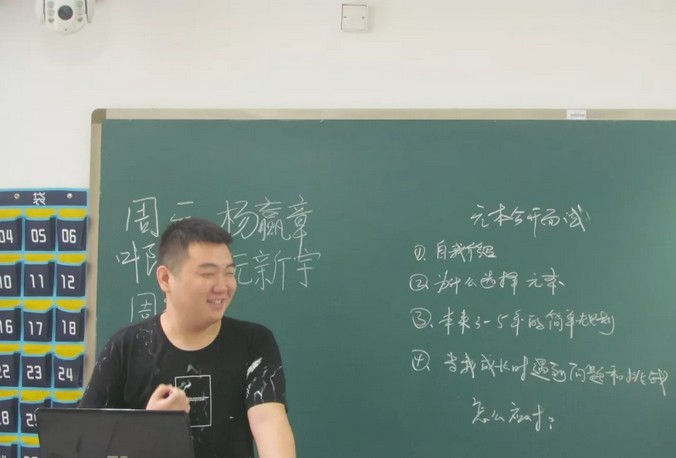 袋
04 05 06
10 11 12
16 17 18
22 23 24
周 杨赢章
叶 元新宇
周
元本公开面试
①. 自我介绍
②. 为什么选择元本
③. 未来3-5年的简单规划
④. 当我成长时遇到问题和挑战
怎么应对?